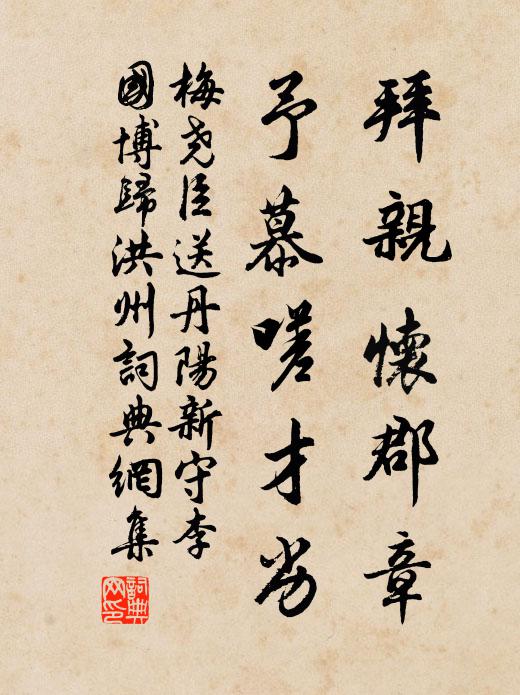 拜親懷郡章
予慕嗟才劣
梅堯臣送丹陽新守李
國博歸洪州詞典網集
詞典網印